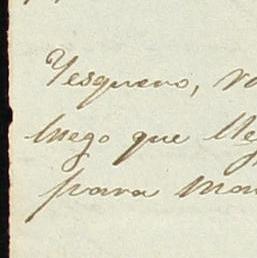 Yesquero, v
luego que lle
para mar